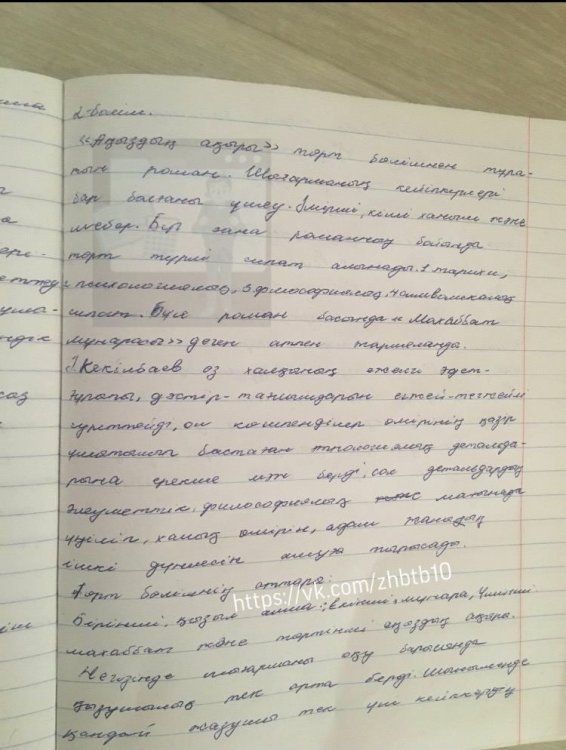 2-бөлім.
«Аңыздың ақыры» төрт бөлімнен тұра-
тын роман. Шығарманың кейіпкерлері
бар болғаны үшеу. Әмірші, кіші ханым және
шебер. Бір ғана романның бойында
төрт түрлі сипат алынады. 1 тарихи,
2 психологиялық, 3 философиялық, 4 символикалық
сипат. Бұл роман басында «Махаббат
мұнарасы» деген атпен жарияланды.
Ә.Кекілбаев өз халқының ежелгі әдет-
ғұрпы, дәстүр-танымдарын егжей-тегжейлі
суреттейді, ол көшпенділер өмірінің қазір
ұмытылып бастаған этнологиялық деталда-
рына ерекше мән берді, сол детальдардың
әлеуметтік, философиялық мағынада
үңіліп, халық өмірін, адам жанының
ішкі дүниесін ашуға тырысады.
Төрт бөлімнің аттары:
Бірінші, қызыл алма; екінші, мұнара, үшінші
махаббат және төртінші аңыздың ақыры.
Негізінде шығарманы оқу барысында
қызушылық тек арта берді. Шынымен де
қандай жазушы тек үш кейіпкерді
https://vk.com/zhbtb10